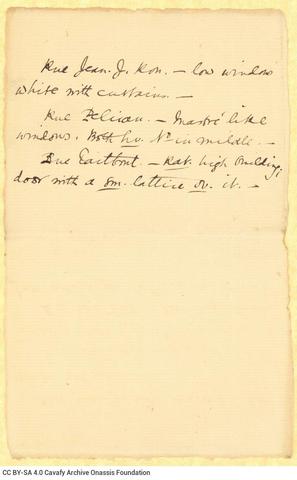 Rue Jean. J. Rou. – low window
white with curtains. –
Rue Pelican. – Mastré like
windows. Both hv. No in middle. –
Rue Taitbout. – Rat. high building;
door with a sm. lattice ov. it. –
CC BY-SA 4.0 Cavafy Archive Onassis Foundation